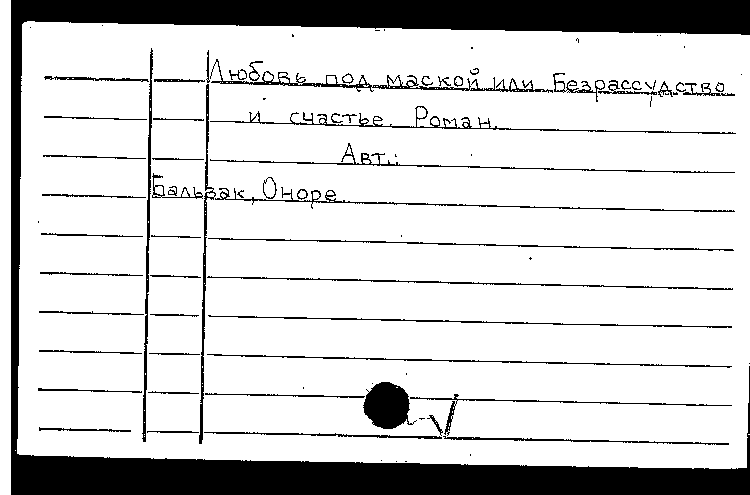 Любовь под маской или Безрассудство
и счастье. Роман.
Авт.:
Бальзак, Оноре.